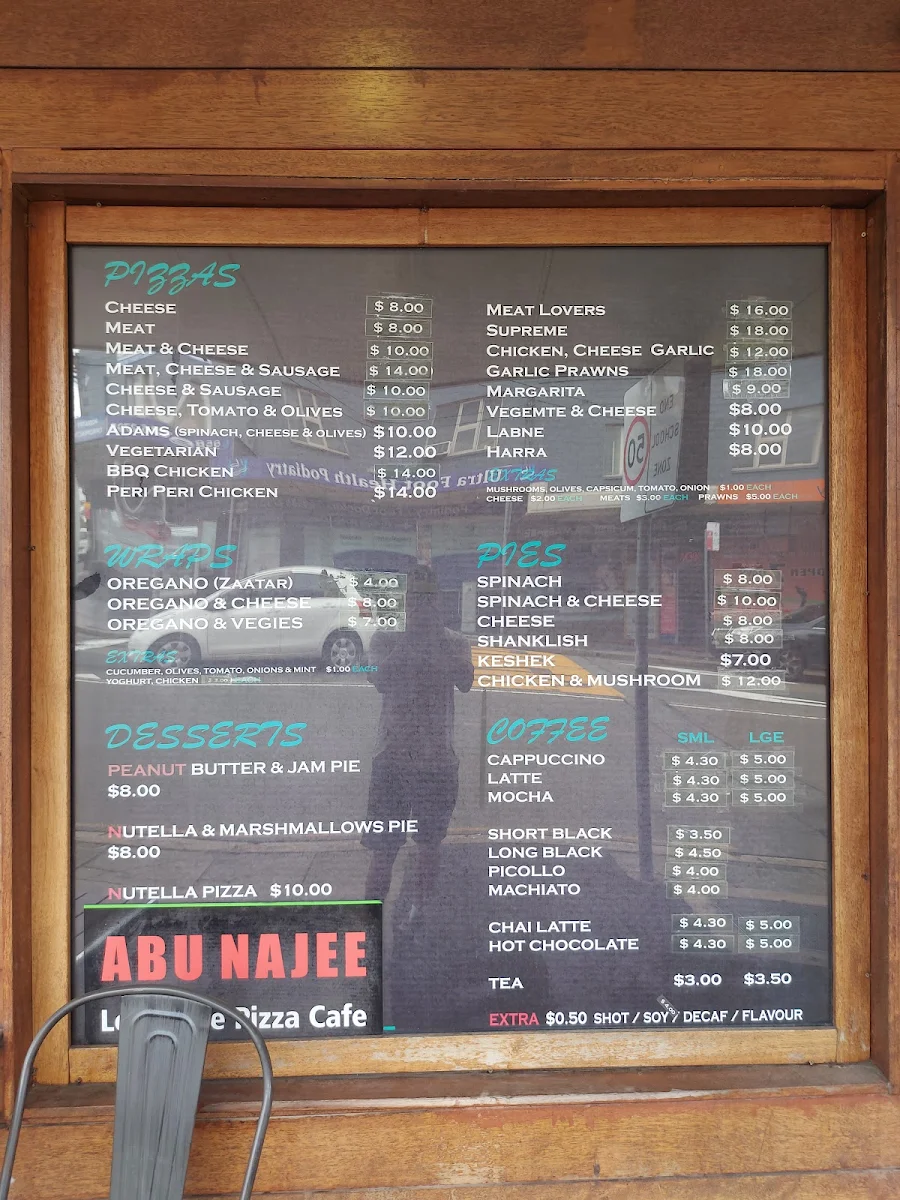 PIZZAS
CHEESE $ 8.00
MEAT $ 8.00
MEAT & CHEESE $ 10.00
MEAT, CHEESE & SAUSAGE $ 14.00
CHEESE & SAUSAGE $ 10.00
CHEESE, TOMATO & OLIVES $ 10.00
ADAMS (SPINACH, CHEESE & OLIVES) $10.00
VEGETARIAN $12.00
BBQ CHICKEN $ 14.00
PERI PERI CHICKEN $14.00
MEAT LOVERS $ 16.00
SUPREME $ 18.00
CHICKEN, CHEESE GARLIC $ 12.00
GARLIC PRAWNS $ 18.00
MARGARITA $ 9.00
VEGEMTE & CHEESE $8.00
LABNE $10.00
HARRA $8.00
EXTRAS
MUSHROOMS, OLIVES, CAPSICUM, TOMATO, ONION $1.00 EACH
CHEESE $2.00 EACH MEATS $3.00 EACH PRAWNS $5.00 EACH
WRAPS
OREGANO (ZAATAR) $ 4.00
OREGANO & CHEESE $ 8.00
OREGANO & VEGIES $ 7.00
EXTRAS
CUCUMBER, OLIVES, TOMATO, ONIONS & MINT $1.00 EACH
YOGHURT, CHICKEN EACH
PIES
SPINACH $ 8.00
SPINACH & CHEESE $ 10.00
CHEESE $ 8.00
SHANKLISH $ 8.00
KESHEK $7.00
CHICKEN & MUSHROOM $ 12.00
DESSERTS
PEANUT BUTTER & JAM PIE
$8.00
NUTELLA & MARSHMALLOWS PIE
$8.00
NUTELLA PIZZA $10.00
COFFEE SML LGE
CAPPUCCINO $ 4.30 $ 5.00
LATTE $ 4.30 $ 5.00
MOCHA $ 4.30 $ 5.00
SHORT BLACK $ 3.50
LONG BLACK $ 4.50
PICOLLO $ 4.00
MACHIATO $ 4.00
CHAI LATTE $ 4.30 $ 5.00
HOT CHOCOLATE $ 4.30 $ 5.00
TEA $3.00 $3.50
EXTRA $0.50 SHOT / SOY / DECAF / FLAVOUR
ABU NAJEE
Pizza Cafe
Ultra Foot Health Podiatry
END
SCHOOL
ZONE
50